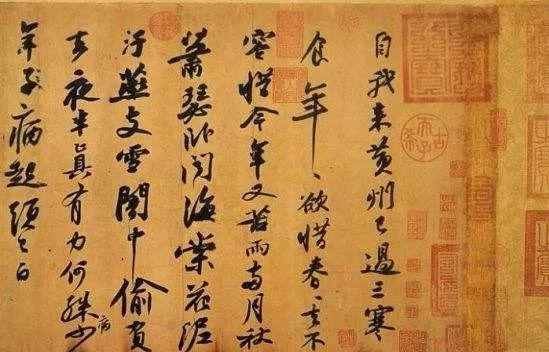 自我來黃州已過三寒
食年〻欲惜春〻去不
容惜今年又苦雨兩月秋
蕭瑟臥聞海棠花泥
汙燕支雪闇中偷負
去夜半真有力何殊少
病
年子病起須已白
古希天子